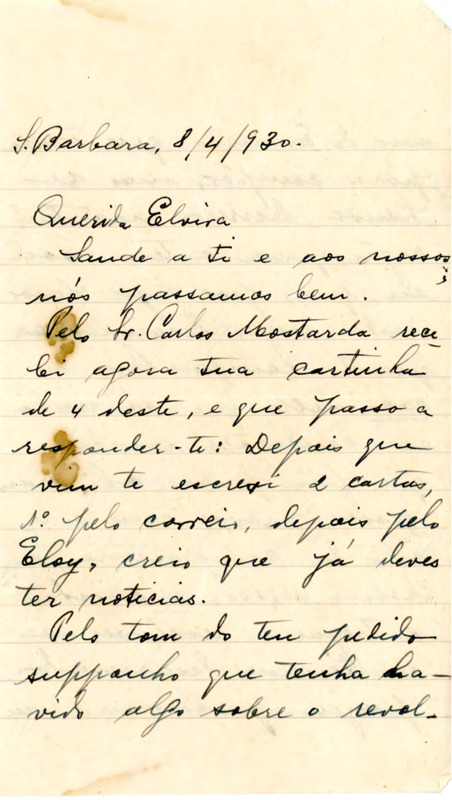 S. Barbara, 8/4/930.
Querida Elvira
Saude a ti e aos nossos
nós passamos bem.
Pelo Sr. Carlos Mostarda rece
bi agora tua cartinha
de 4 deste, e que passo a
responder-te: Depois que
vim te escrevi 2 cartas,
1º pelo correio, depois pelo
Eloy, creio que já deves
ter noticias.
Pelo tom do teu pedido
suppanho que tenha ha-
vido algo sobre o revol-